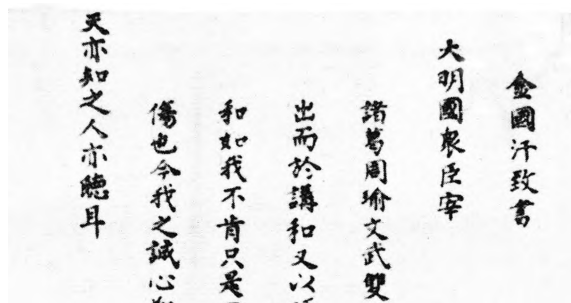 金國汗致書
大明國衆臣宰
諸葛周瑜文武雙
出而於講和又以
和如我不肯只是
傷也今我之誠心
天亦知之人亦聽耳